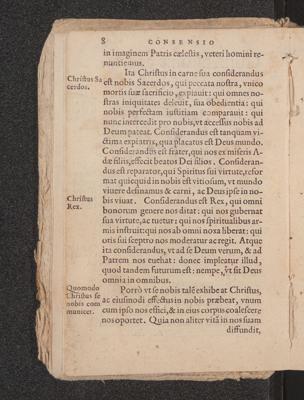 8 CONSENSIO
in imaginem Patris cælestis, veteri homini re-
nuntiemus.
Ita Christus in carne sua considerandus
Christus Sa
cerdos.
est nobis Sacerdos, qui peccata nostra, vnico
mortis suæ sacrificio, expiauit: qui omnes no-
stras iniquitates deleuit, sua obedientia: qui
nobis perfectam iustitiam comparauit: qui
nunc intercedit pro nobis, vt accessus nobis ad
Deum pateat. Considerandus est tanquam vi-
ctima expiatrix, qua placatus est Deus mundo.
Considerandus est frater, qui nos ex miseris A-
dæ filiis, effecit beatos Dei filios. Consideran-
dus est reparator, qui Spiritus sui virtute, refor
mat quicquid in nobis est vitiosum, vt mundo
viuere desinamus & carni, ac Deus ipse in no-
Christus
Rex.
bis viuat. Considerandus est Rex, qui omni
bonorum genere nos ditat: qui nos gubernat
sua virtute, ac tuetur: qui nos spiritualibus ar-
mis instruit: qui nos ab omni noxa liberat: qui
oris sui sceptro nos moderatur ac regit. Atque
ita considerandus, vt ad se Deum verum, & ad
Patrem nos euehat: donec impleatur illud,
quod tandem futurum est: nempe, vt sit Deus
omnia in omnibus.
Quomodo
Christus se
nobis com
municet.
Porrò vt se nobis talẽ exhibeat Christus,
ac eiusmodi effectus in nobis præbeat, vnum
cum ipso nos effici, & in eius corpus coalescere
nos oportet. Quia non aliter vitã in nos suam
diffundit,